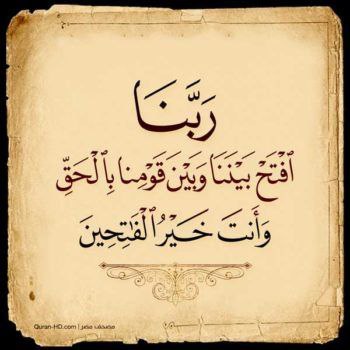 رَبَّنَا
ٱفْتَحْ بَيْنَنَا وَبَيْنَ قَوْمِنَا بِٱلْحَقِّ
وَأَنتَ خَيْرُ ٱلْفَٰتِحِينَ
Quran-HD.com | مصحف مصر